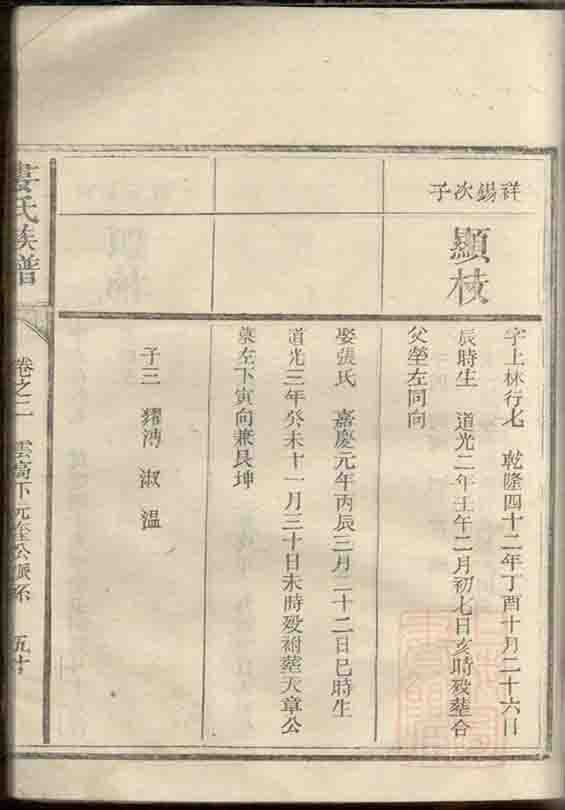 祥錫次子
顯枝
字上林行七 乾隆四十二年丁酉十月二十六日
辰時生 道光二年壬午二月初七日亥時殁塟合
父塋左同向
娶張氏 嘉慶元年丙辰三月二十二日巳時生
道光三年癸未十一月三十日未時殁祔塟天章公
墓左下寅向兼艮坤
子三 耀溥 淑 溫
氏族譜
卷之二 雲高下元奎公派系 五十